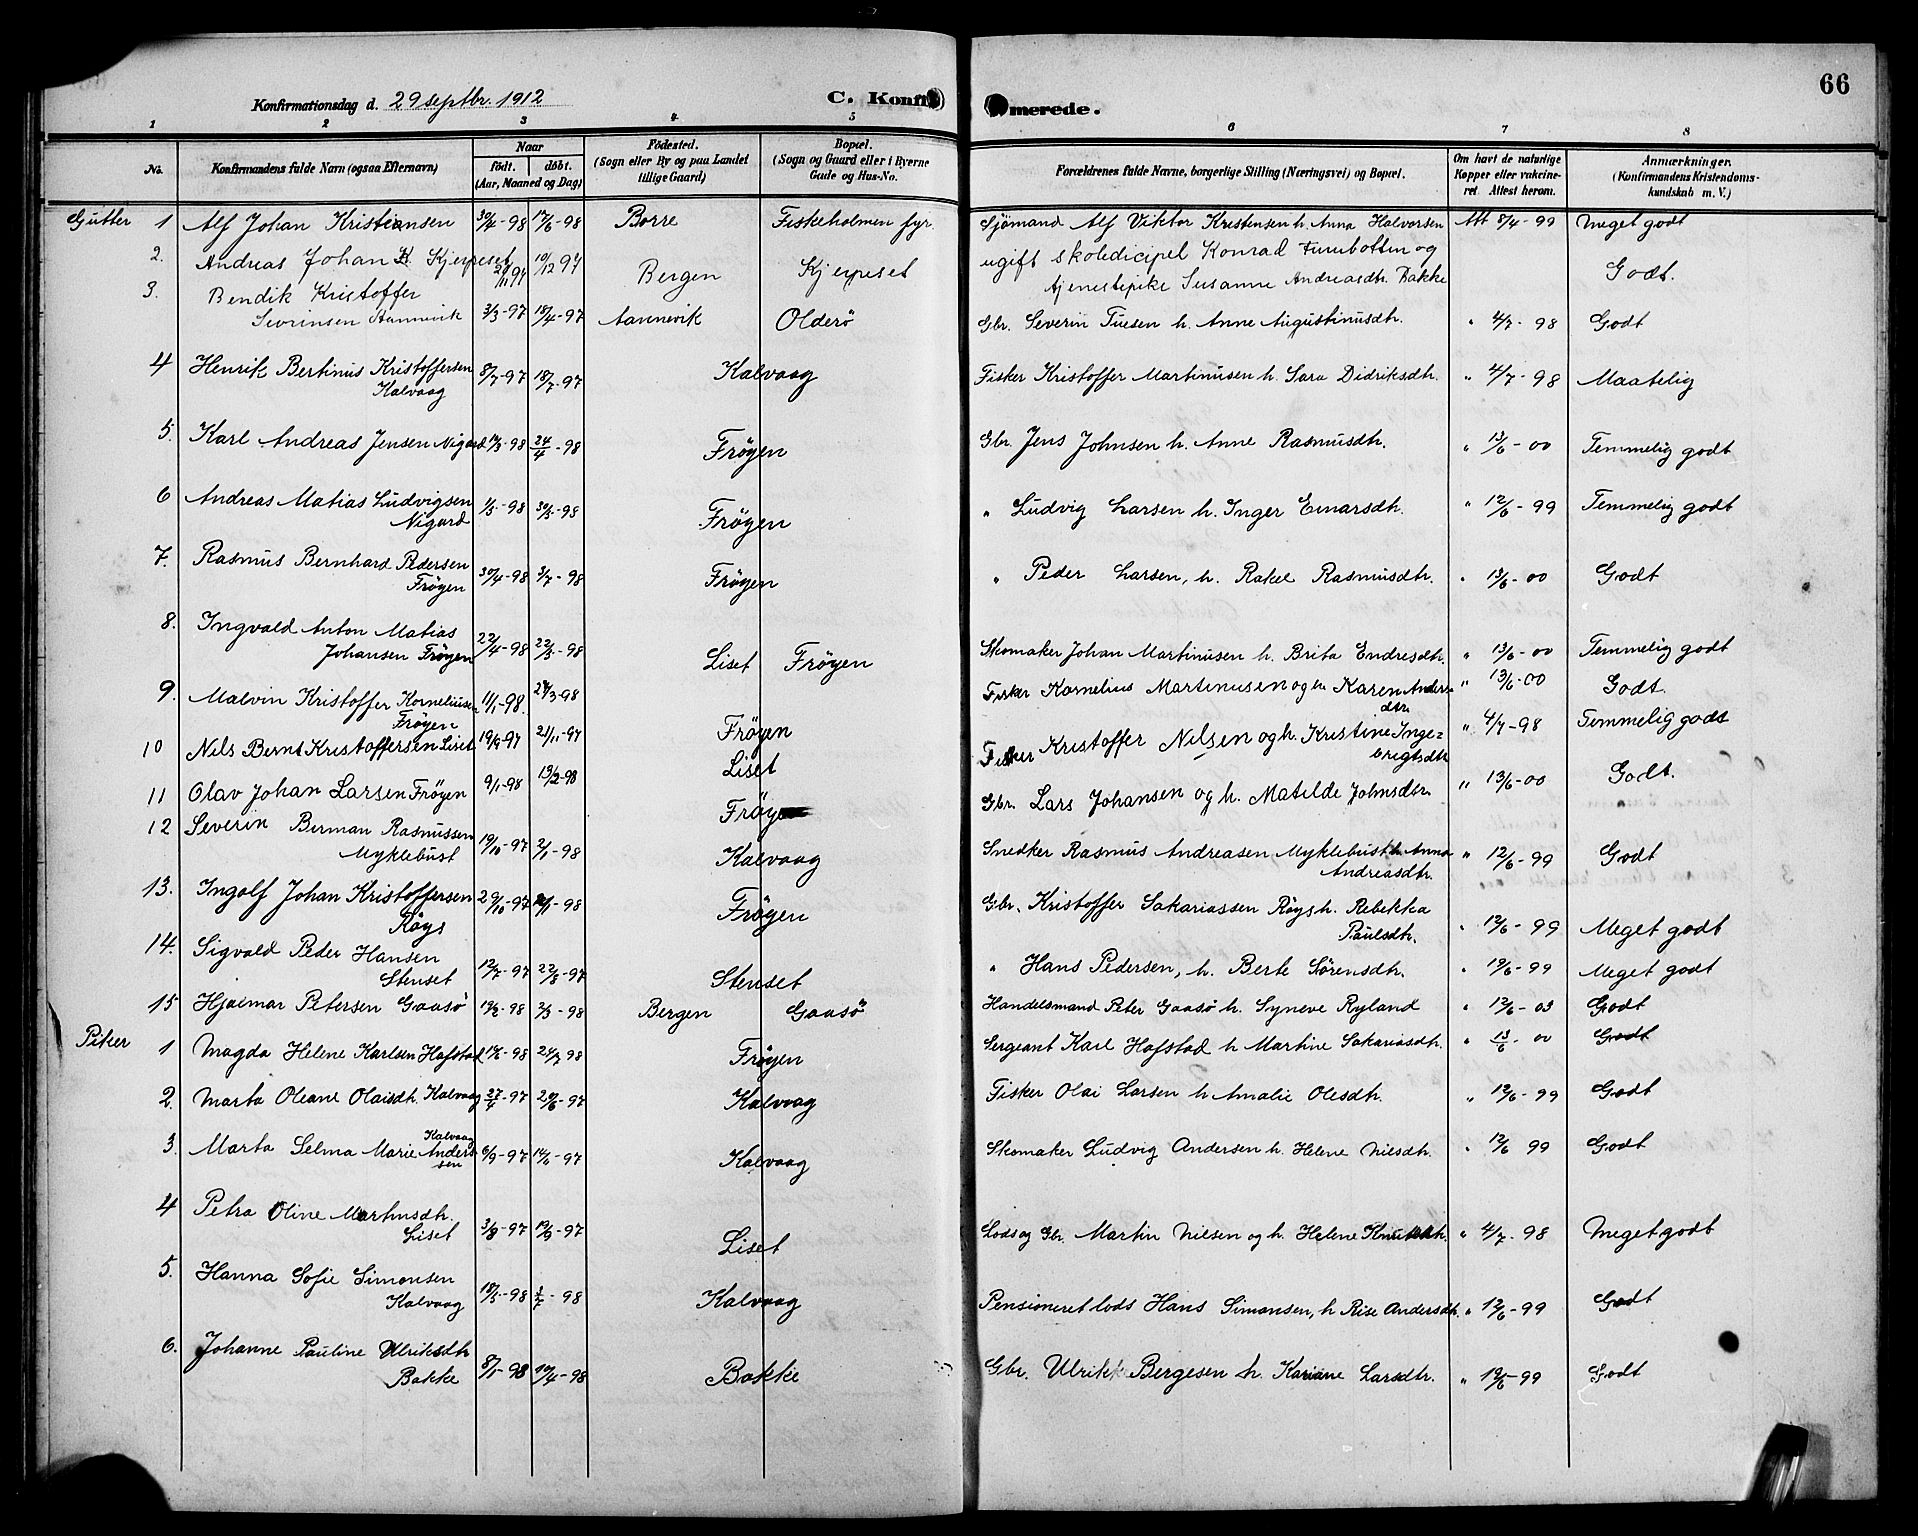 66
Konfirmationsdag d. 29 septbr. 1912 C. Konfirmerede.
1 2 3 4 5 6 7 8
No. Konfirmandens fulde Navn (ogsaa Efternavn) Naar født. døbt. (Aar, Maaned og Dag) Fødested. (Sogn eller By og paa Landet tillige Gaard) Bopæl. (Sogn og Gaard eller i Byerne Gade og Hus-No. Forældrenes fulde Navne, borgerlige Stilling (Næringsvei) og Bopæl. Om havt de naturlige Kopper eller vakcineret. Attest herom. Anmærkninger. (Konfirmandens Kristendomskundskab m. V.)
Gutter 1 Alf Johan Kristiansen 30/4-98 12/6-98 Borre Fiskeholmen fyr. Sjömand Alf Viktor Kristensen h. Anna Halvorsen Att 8/4-99 Meget godt
2. Andreas Johan K. Kjerpeset 21/11 97 10/12 97 Bergen Kjerpeset ugift skoledicipel Konrad Furubotten og
tjenestepike Susanne Andreasdtr. Bakke Godt.
3. Bendik Kristoffer
Severinsen Aannevik 3/3-97 18/4-97 Aannevik Olderö Gbr. Severin Tuesen h. Anne Augustinusdtr. " 4/7-98 Godt
4 Henrik Bertinus Kristoffersen
Kalvaag 8/7-97 18/7-97 Kalvaag Fisker Kristoffer Martinusen h. Sara Didriksdtr. " 4/7-98 Maatelig
5. Karl Andreas Jensen Nigard 19/3-98 24/4-98 Fröyen Gbr. Jens Johnsen h. Anne Rasmusdtr. " 13/6-00 Temmelig godt
6 Andreas Matias Ludvigsen
Nigard 1/5-98 30/5-98 Fröyen " Ludvig Larsen h. Inger Einarsdtr. " 12/6-99 Temmelig godt
7. Rasmus Bernhard Pedersen
Fröyen 30/4-98 3/7-98 Fröyen " Peder Larsen, h. Rakel Rasmusdtr. " 13/6-00 Godt
8. Ingvald Anton Matias
Johansen Fröyen 22/4-98 22/5-98 Liset Fröyen Skomaker Johan Martinusen h. Brita Endresdtr. " 13/6-00 Temmelig godt
9. Malvin Kristoffer Korneliusen
Fröyen 11/1-98. 27/3-98 Fröyen Fisker Kornelius Martinusen og h. Karen Anders-
dtr. " 13/6-00 Godt.
10 Nils Bernt Kristoffersen Liset 19/9-97 21/11-97 Liset Fisker Kristoffer Nilsen og h. Kristine Inge=
brigtsdtr " 4/7-98 Temmelig godt
11 Olav Johan Larsen Fröyen 9/1-98 13/2-98 Fröyen Gbr. Lars Johansen og h. Matilde Johnsdtr. " 13/6-00 Godt.
12 Severin Berman Rasmussen
Myklebust 19/10-97 2/1-98 Kalvaag Snedker Rasmus Andreasen Myklebust h. Anna
Andreasdtr. " 12/6-99 Godt
13. Ingolf Johan Kristoffersen
Röys 29/10-97 -98 Fröyen Gbr. Kristoffer Sakariassen Röys h. Rebekka
Paulsdtr. " 12/6-99 Meget godt
14. Sigvald Peder Hansen
Stenset 12/7-97 22/8-97 Stenset " Hans Pedersen, h. Berte Sörensdtr. " 12/6-99 Meget godt
15 Hjalmar Petersen Gaasö 19/2-98 3/5-98 Bergen Gaasö Handelsmand Peter Gaasö h. Syneve Ryland " 12/6-03 Godt
Piker 1 Magda Helene Karlsen Hafstad 19/6-98 24/7 98 Fröyen Sergeant Karl Hafstad h Martine Sakariasdtr. " 13/6-00 Godt
2. Marta Oleane Olaisdtr. Kalvaag 27/4-97 20/6-97 Kalvaag Fisker Olai Larsen h Amalie Olesdtr. " 12/6-99 Godt
3. Marta Selma Marie Anders
sen Kalvaag 6/9-97 -97 Kalvaag Skomaker Ludvig Andersen h. Helene Nilsdtr. " 12/6 99 Godt
4 Petra Oline Martinsdtr.
Liset 3/8-97 19/9-97 Liset Lods og Gbr. Martin Nilsen og h. Helene Knutsdtr. " 4/7-98 Meget godt
5. Hanna Sofie Simonsen
Kalvaag 18/5-98 3/7-98 Kalvaag Pensioneret lods Hans Simonsen, h Rise Andersdtr. " 12/6-99 Godt
6. Johanne Pauline Ulriksdtr
Bakke 8/1-98 10/4-98 Bakke Gbr. Ulrikk Bergesen h. Kariane Larsdtr. " 12/6-99 Godt